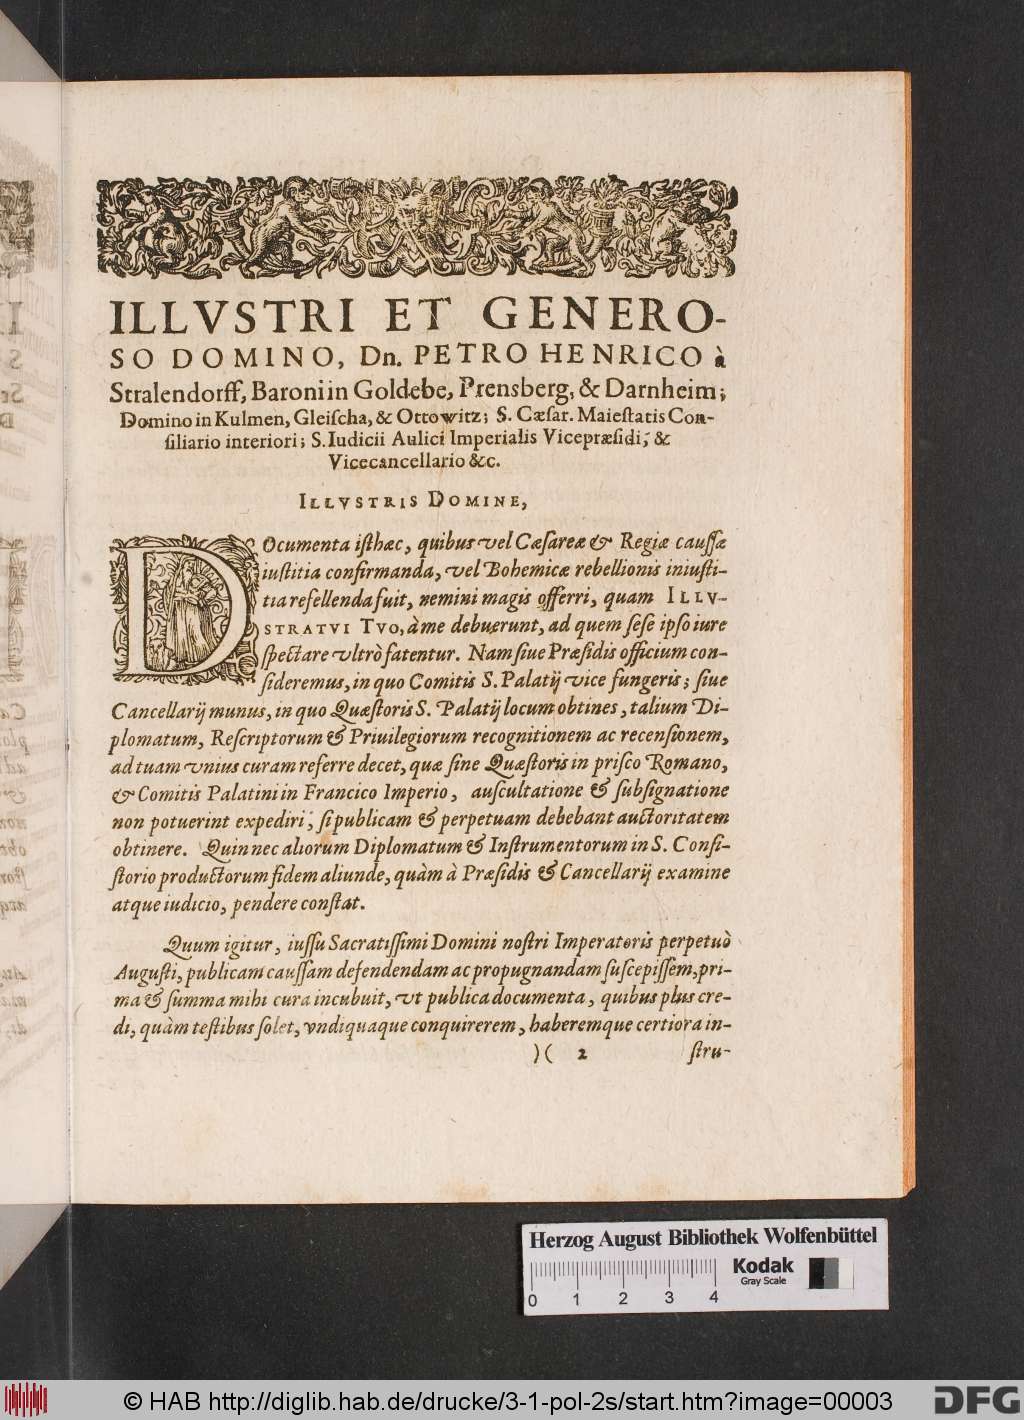 ILLVSTRI ET GENERO-
SO DOMINO, Dn. PETRO HENRICO à
Stralendorff, Baroni in Goldebe, Prensberg, & Darnheim;
Domino in Kulmen, Gleiſcha, & Ottowitz; S. Cæſar. Maieſtatis Con-
ſiliario interiori; S. Iudicii Aulici Imperialis Vicepræſidi, &
Vicecancellario &c.
ILLVSTRIS DOMINE,
DOcumenta iſthæc, quibus vel Cæſareæ & Regiæ cauſſæ
iuſtitia confirmanda, vel Bohemicæ rebellionis iniuſti-
tia refellenda fuit, nemini magis offerri, quam ILLV-
STRATVI TVO, à me debuerunt, ad quem ſeſe ipſo iure
ſpectare vltrò fatentur. Nam ſiue Præſidis officium con-
ſideremus, in quo Comitis S. Palatij vice fungeris; ſiue
Cancellarij munus, in quo Quæſtoris S. Palatij locum obtines, talium Di-
plomatum, Reſcriptorum & Priuilegiorum recognitionem ac recenſionem,
ad tuam vnius curam referre decet, quæ ſine Quæſtoris in priſco Romano,
& Comitis Palatini in Francico Imperio, auſcultatione & ſubſignatione
non potuerint expediri, ſi publicam & perpetuam debebant auctoritatem
obtinere. Quin nec aliorum Diplomatum & Inſtrumentorum in S. Conſi-
ſtorio productorum fidem aliunde, quàm à Præſidis & Cancellarij examine
atque iudicio, pendere conſtat.
Quum igitur, iuſſu Sacratiſſimi Domini noſtri Imperatoris perpetuò
Auguſti, publicam cauſſam defendendam ac propugnandam ſuſcepiſſem, pri-
ma & ſumma mihi cura incubuit, vt publica documenta, quibus plus cre-
di, quàm teſtibus ſolet, vndiquaque conquirerem, haberemque certiora in-
)( 2 ſtru-
Herzog August Bibliothek Wolfenbüttel
Kodak
Gray Scale
0 1 2 3 4
© HAB http://diglib.hab.de/drucke/3-1-pol-2s/start.htm?image=00003
DFG